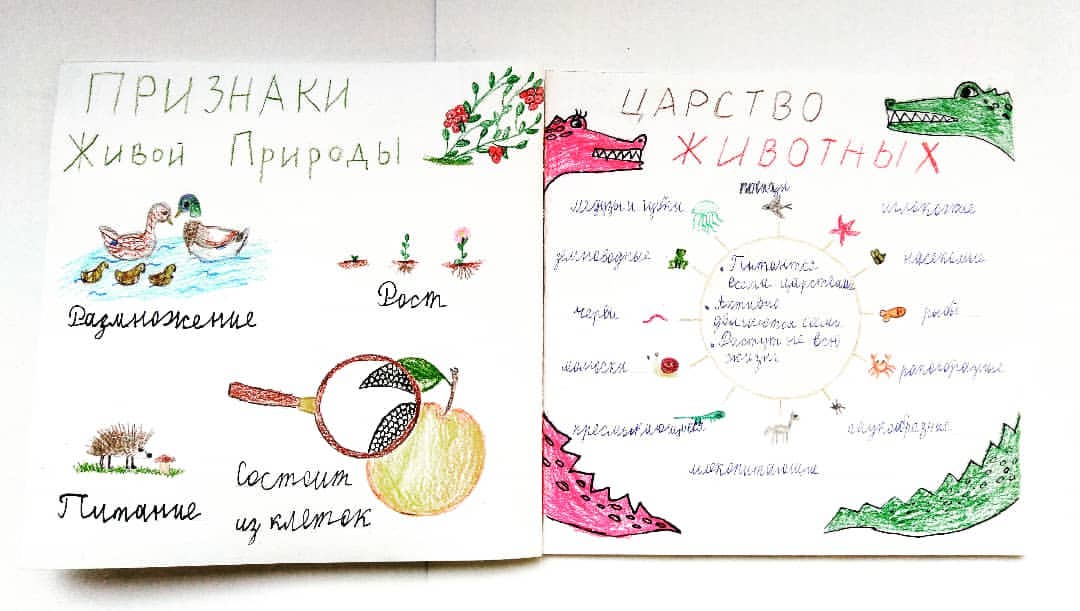 ПРИЗНАКИ
Живой Природы
Размножение
Рост
Питание
Состоит
из клеток
ЦАРСТВО
ЖИВОТНЫХ
птицы
медузы и губки
иглокожие
земноводные
насекомые
черви
рыбы
моллюски
ракообразные
пресмыкающиеся
паукообразные
млекопитающие
• Питаются
всеми царствами
• Активно
двигаются сами
• Растут не всю
жизнь